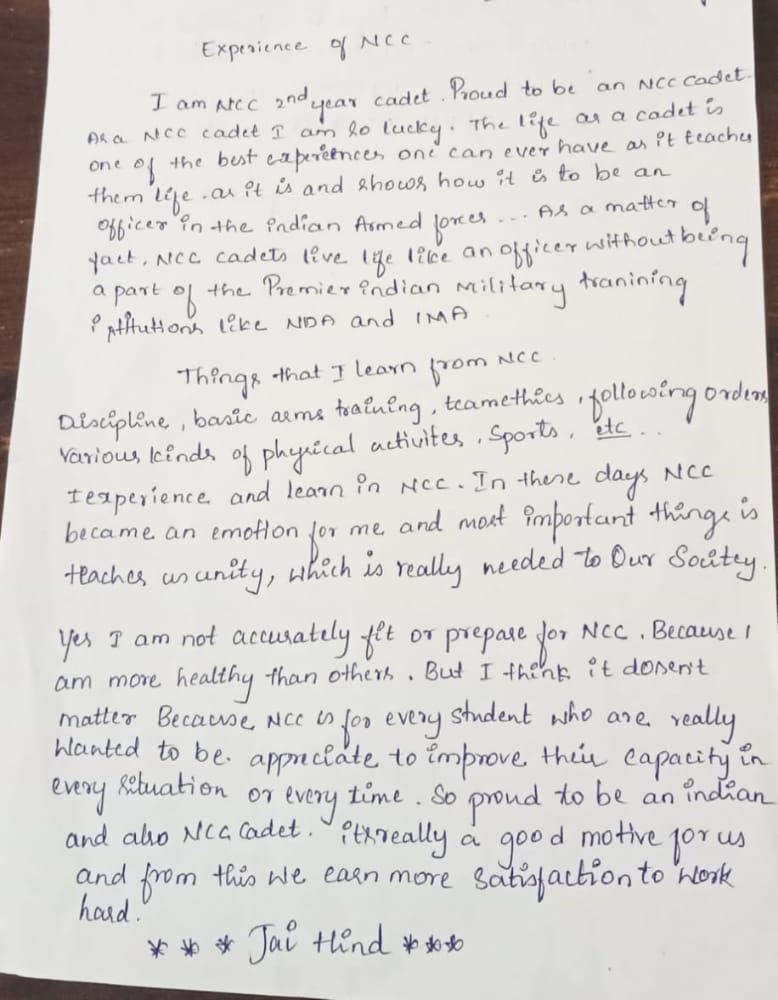 Experience of NCC
I am NCC 2nd year cadet. Proud to be an NCC cadet.
As a NCC cadet I am so lucky. The life as a cadet is
one of the best experiences one can ever have as it teaches
them life. as it is and shows how it is to be an
officer in the indian Armed forces... As a matter of
fact, NCC cadets live life like an officer without being
a part of the Premier indian Military tranining
like NDA and IMA
Things that I learn from NCC.
Discipline, basic arms training, teamethics, following orders
Various kinds of physical activites, Sports, etc..
I experience and learn in NCC. In these days NCC
became an emotion for me and most important things is
teaches us unity, which is really needed to Our Socitey.
Yes I am not accurately fit or prepase for NCC. Because I
am more healthy than others. But I think it dosen't
matter Because NCC is for every student who are really
Wanted to be. appreciate to improve their capacity in
every Situation or every time. So proud to be an indian
and also NCC Cadet. its really a good motive for us
and from this we earn more Satisfaction to work
hard.
*** Jai Hind ***